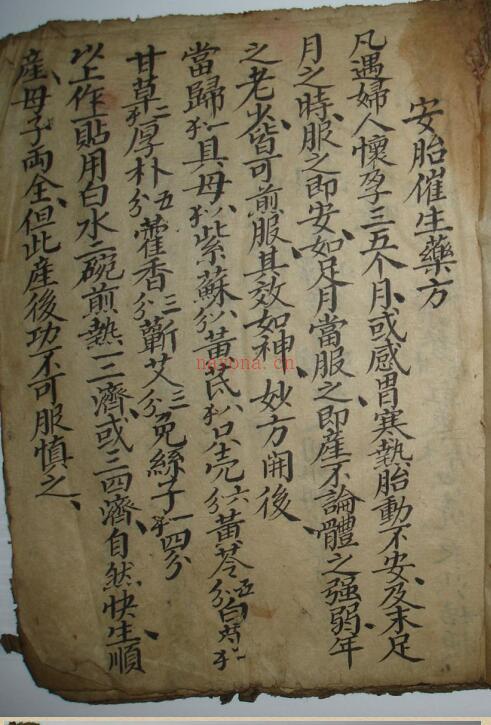 安胎催生藥方
凡遇婦人懷孕三五个月、或感冒寒熱胎動不安、及末足
月之時、服之即安、如足月當服之即産、不論體之强弱、年
之老少、皆可煎服、其效如神、妙方開後、
當歸 具母 紫蘇 黃芪 只壳六分 黃苓五分 白芍
甘草 厚朴五分 藿香三分 蘄艾三分 免絲子一 四分
以上作一貼用白水二碗煎熱一二濟、或三四濟、自然快生、順
産、母子兩全、但此産後功不可服慎之、
nayona.cn